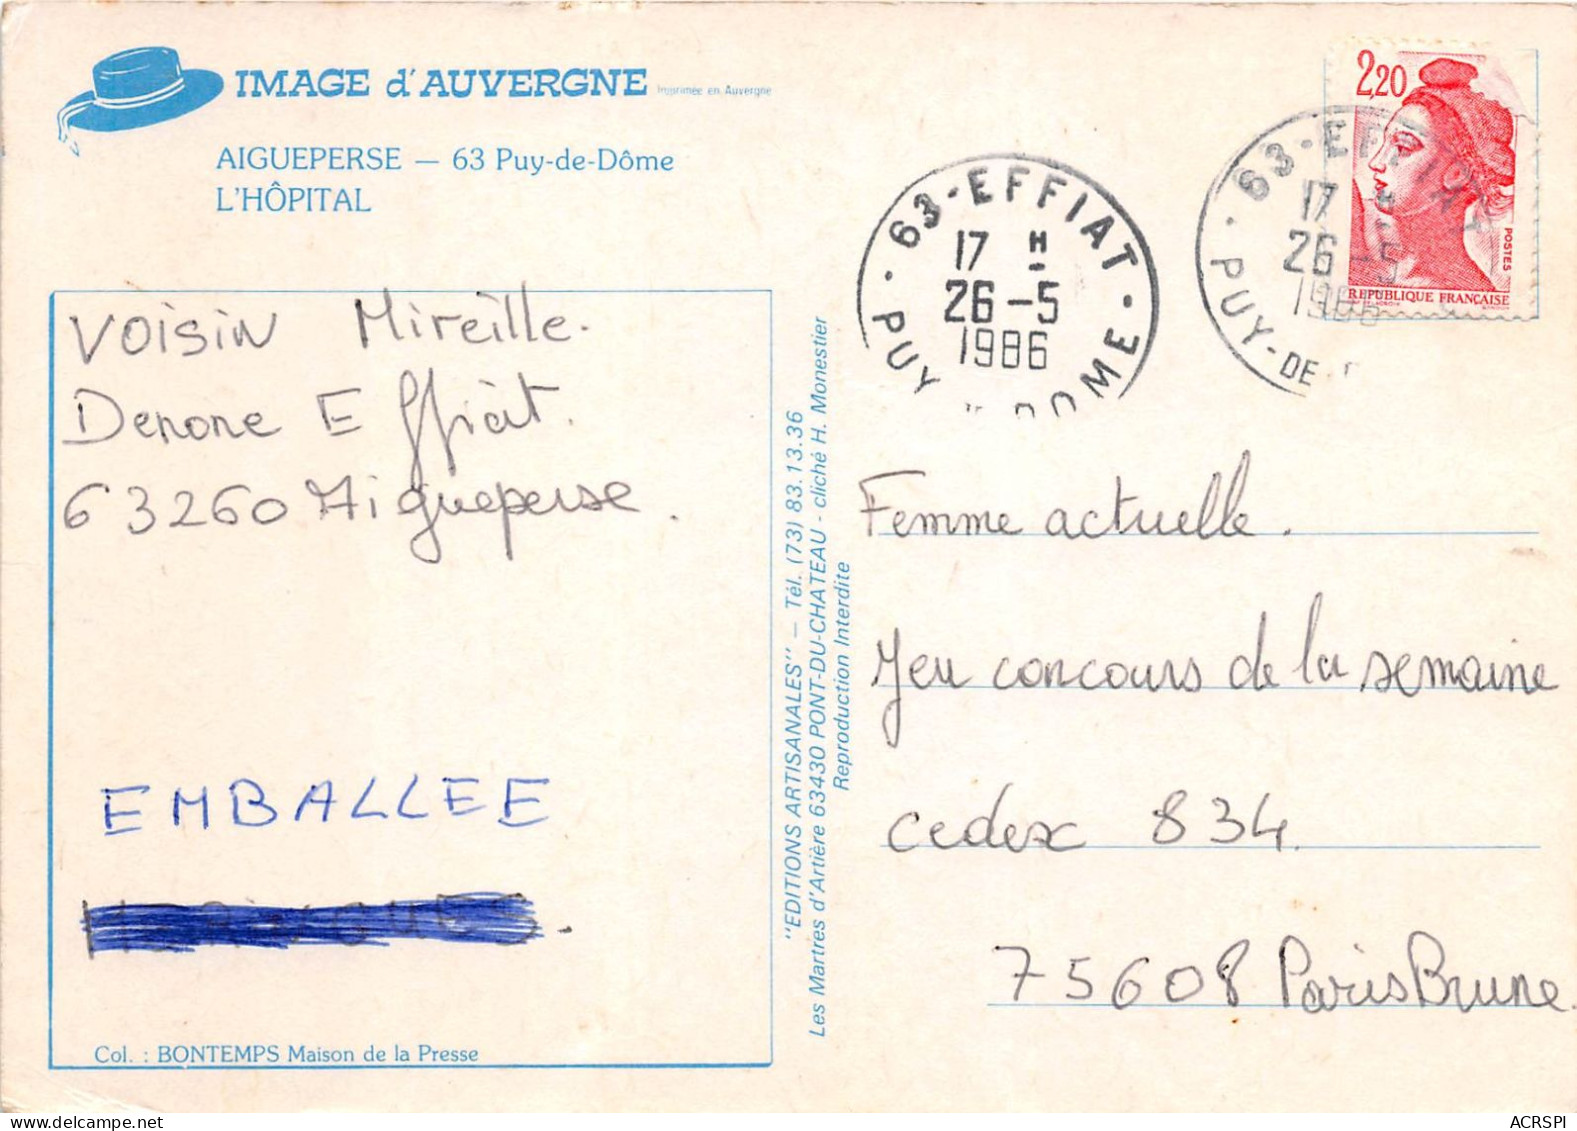 IMAGE d'AUVERGNE Imprimée en Auvergne
AIGUEPERSE — 63 Puy-de-Dôme
L'HÔPITAL
VOISIN Mireille.
Denone Effiat.
63260 Aigueperse.
EMBALLEE
Col. : BONTEMPS Maison de la Presse
"EDITIONS ARTISANALES" — Tél. (73) 83.13.36
Les Martres d'Artière 63430 PONT-DU-CHATEAU - cliché H. Monestier
Reproduction Interdite
63 - EFFIAT
17 H
26 - 5
1986
PUY DOME
63 - EFFIAT
17 H
26 - 5
1986
PUY - DE
2,20
POSTES
REPUBLIQUE FRANÇAISE
Femme actuelle.
Jeu concours de la semaine
cedex 834.
75608 Paris Brune.
ACRSPI